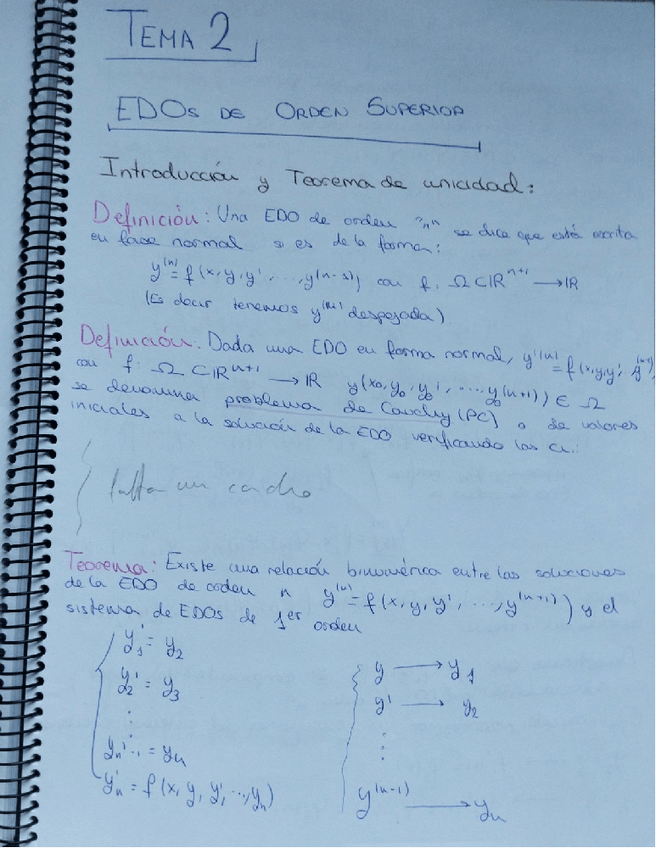 TEMA 2
EDOs DE ORDEN SUPERIOR
Introducción y Teorema de unicidad:
Definición: Una EDO de orden "n" se dice que está escrita
en fase normal si es de la forma:
y⁽ⁿ⁾ = f(x, y, y', ..., y⁽ⁿ⁻¹⁾) con f: Ω ⊂ ℝⁿ⁺¹ → ℝ
(Es decir tenemos y⁽ⁿ⁾ despejada)
Definición: Dada una EDO en forma normal, y⁽ⁿ⁾ = f(x, y, y', y⁽ⁿ⁻¹⁾),
con f: Ω ⊂ ℝⁿ⁺¹ → ℝ y (x₀, y₀, y₀', ..., y₀⁽ⁿ⁺¹⁾) ∈ Ω
se denomina problema de Cauchy (PC) o de valores
iniciales a la solución de la EDO verificando las ci..
falta un cacho
Teorema: Existe una relación binumérica entre las soluciones
de la EDO de orden n y⁽ⁿ⁾ = f(x, y, y', ..., y⁽ⁿ⁺¹⁾) y el
sistema de EDOS de 1er orden
y₁' = y₂
y₂' = y₃
⋮
yₙ'₋₁ = yₙ
yₙ' = f(x, y, y', ..., yₙ)
y → y₁
y' → y₂
⋮
y⁽ⁿ⁻¹⁾ → yₙ